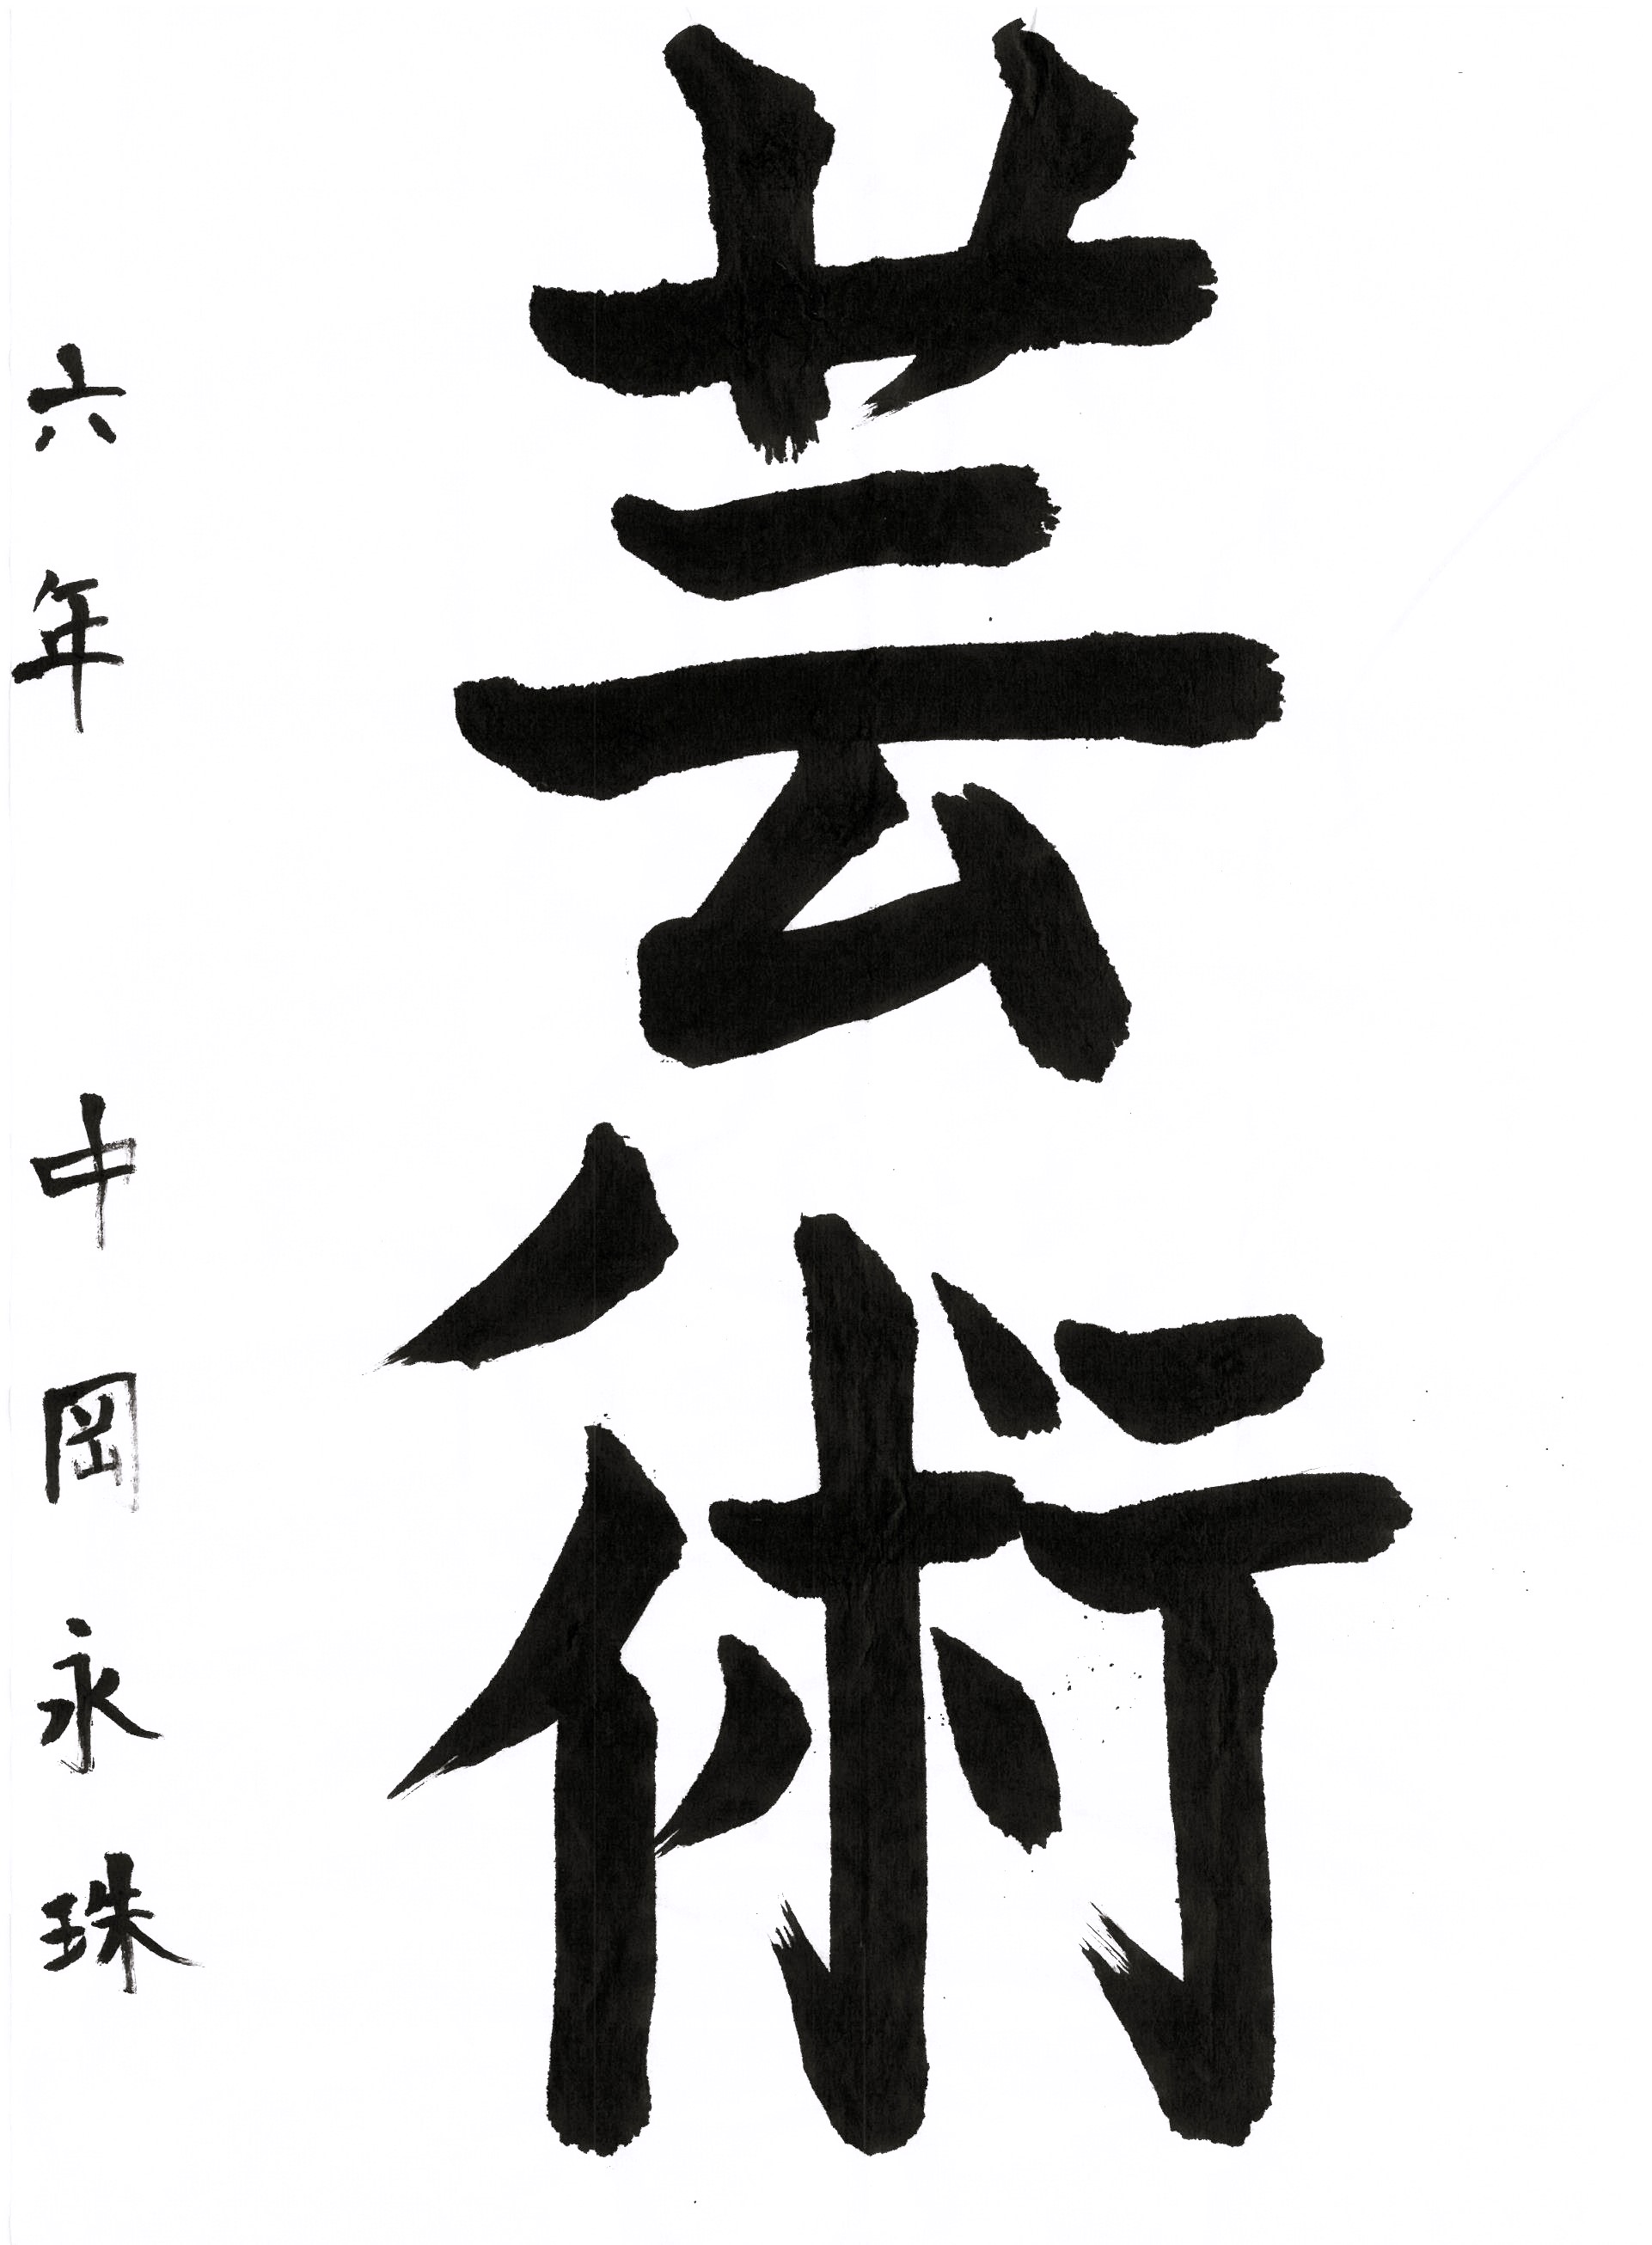 芸術
六年 中岡永珠